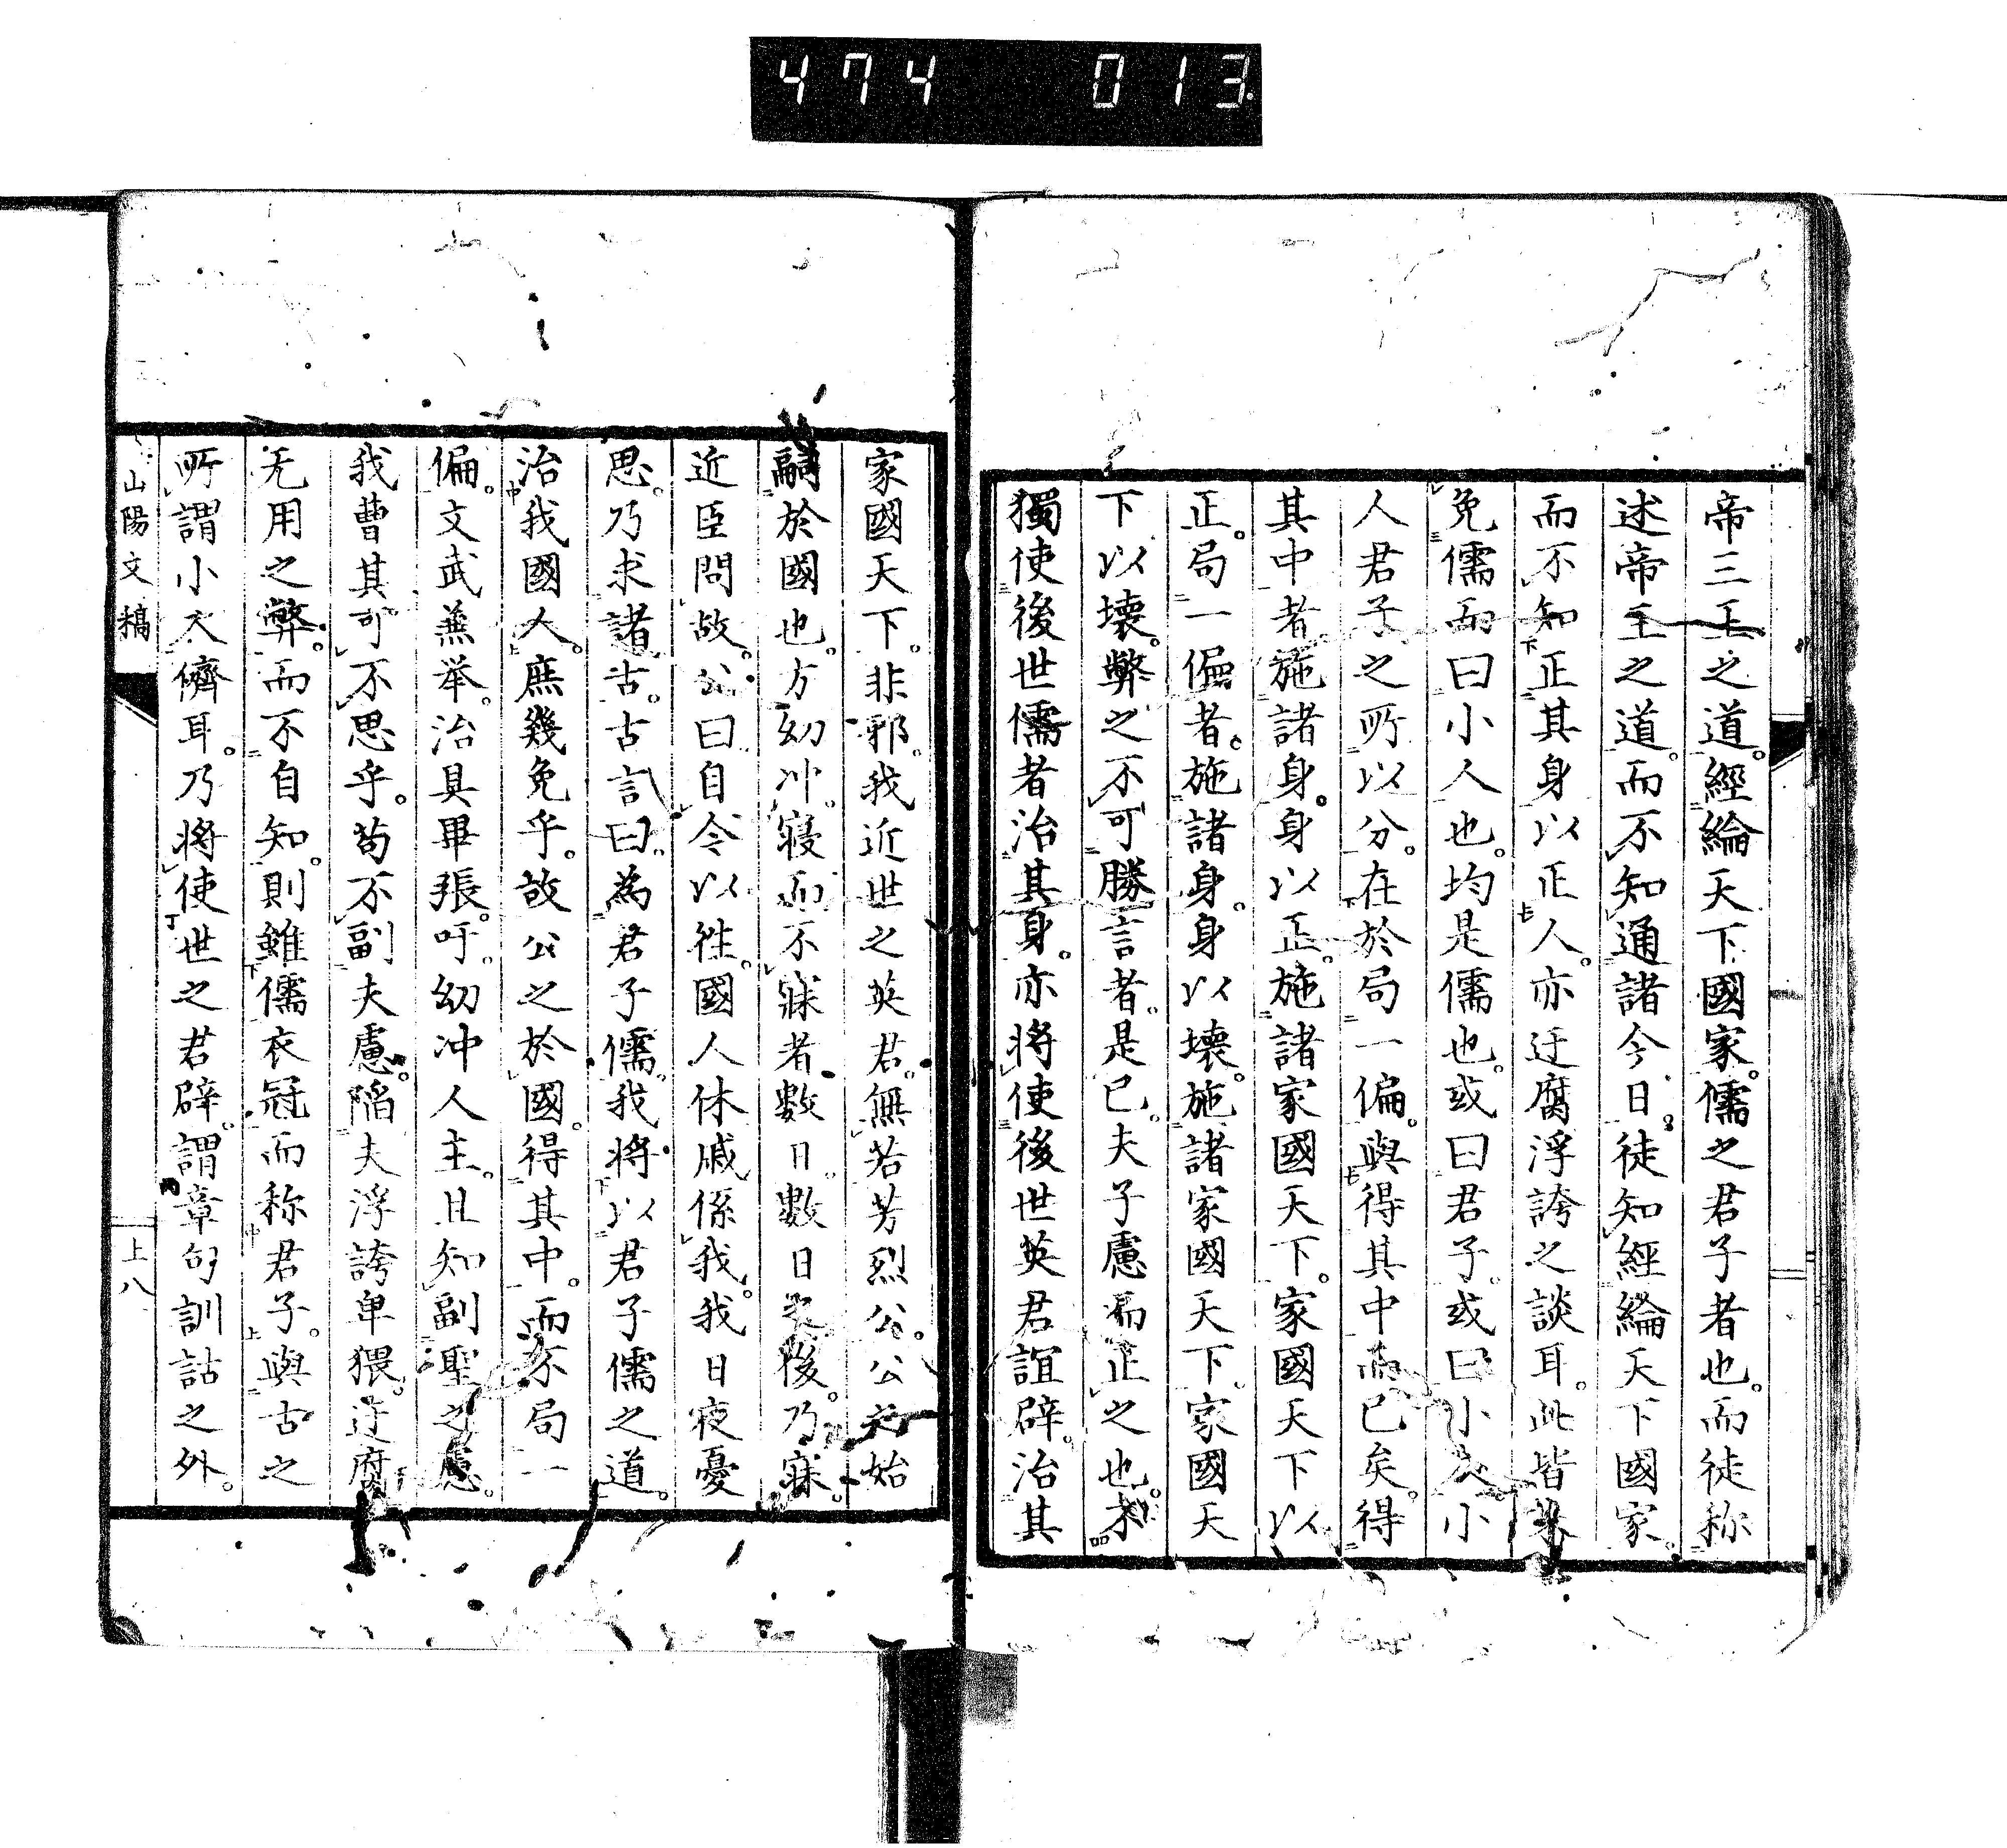 474 013
帝三王之道。經綸天下國家。儒之君子者也。而徒称
述帝王之道。而不知通諸今日。徒知經綸天下國家。
而不知正其身以正人。亦迂腐浮誇之談耳。此皆
免儒而曰小人也。均是儒也。或曰君子。或曰小人。小
人君子之所以分。在於局一偏。與得其中而已矣。得
其中者。施諸身。身以正。施諸家國天下。家國天下以
正。局一偏者。施諸身。身以壊。施諸家國天下。家國天
下以壊。弊之不可勝言者。是已。夫子慮而正之也。不
獨使後世儒者治其身。亦将使後世英君誼辟。治其
家國天下。非邪。我近世之英君。無若芳烈公。公之始
嗣於國也。方幼冲。寝而不寐者數日。數日之後。乃寐。
近臣問故。公曰。自今以徃。國人休戚係我。我日夜憂
思。乃求諸古。古言曰。為君子儒。我将以君子儒之道。
治我國人。庶幾免乎。故公之於國。得其中。而不局一
偏。文武兼举。治具畢張。吁。幼冲人主。且知副聖之慮。
我曹其可不思乎。苟不副夫慮。陥夫浮誇卑猥。迂腐
无用之弊。而不自知。則雖儒衣冠而称君子。與古之
所謂小人儕耳。乃将使世之君辟。謂章句訓詁之外。
山陽文稿
上八